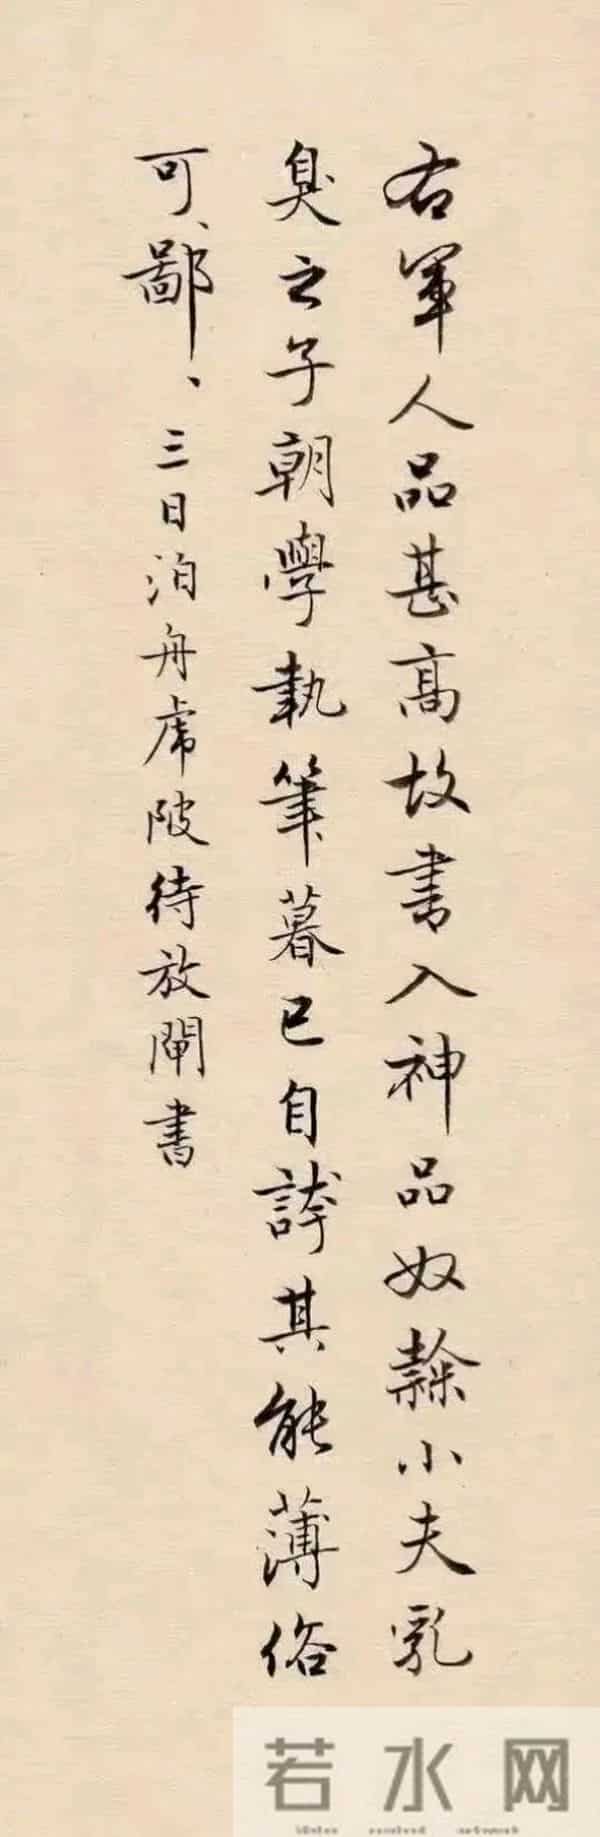 右軍人品甚高故書入神品奴隸小夫乳
臭之子朝學執筆暮已自誇其能薄俗
可、鄙、三日泊舟虎陂待放閘書
若水网